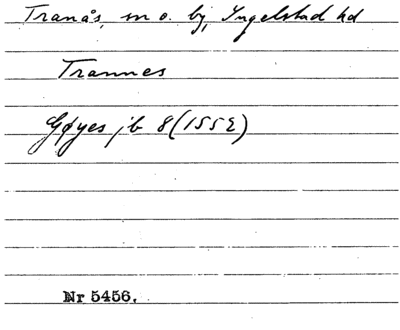 Tranås, sn o. by, Ingelstad hd
Trannes
Gøyes jb 8 (1552)
Nr 5456.